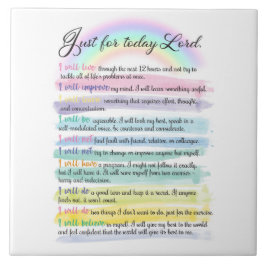 Just for today Lord.
I will live through the next 12 hours and not try to
tackle all of life's problems at once.
I will improve my mind. I will learn something useful.
something that requires effort, thought,
and concentration.
I will be agreeable. I will look my best, speak in a
well-modulated voice, be courteous and considerate.
I will not find fault with friend, relative, or colleague.
I will not try to change or improve anyone but myself.
I will have a program. I might not follow it exactly,
but I will have it. I will save myself from two enemies—
hurry and indecision.
I will do a good turn and keep it a secret. If anyone
finds out, it won't count.
I will do two things I don't want to do, just for the exercise.
I will believe in myself. I will give my best to the world
and feel confident that the world will give its best to me.